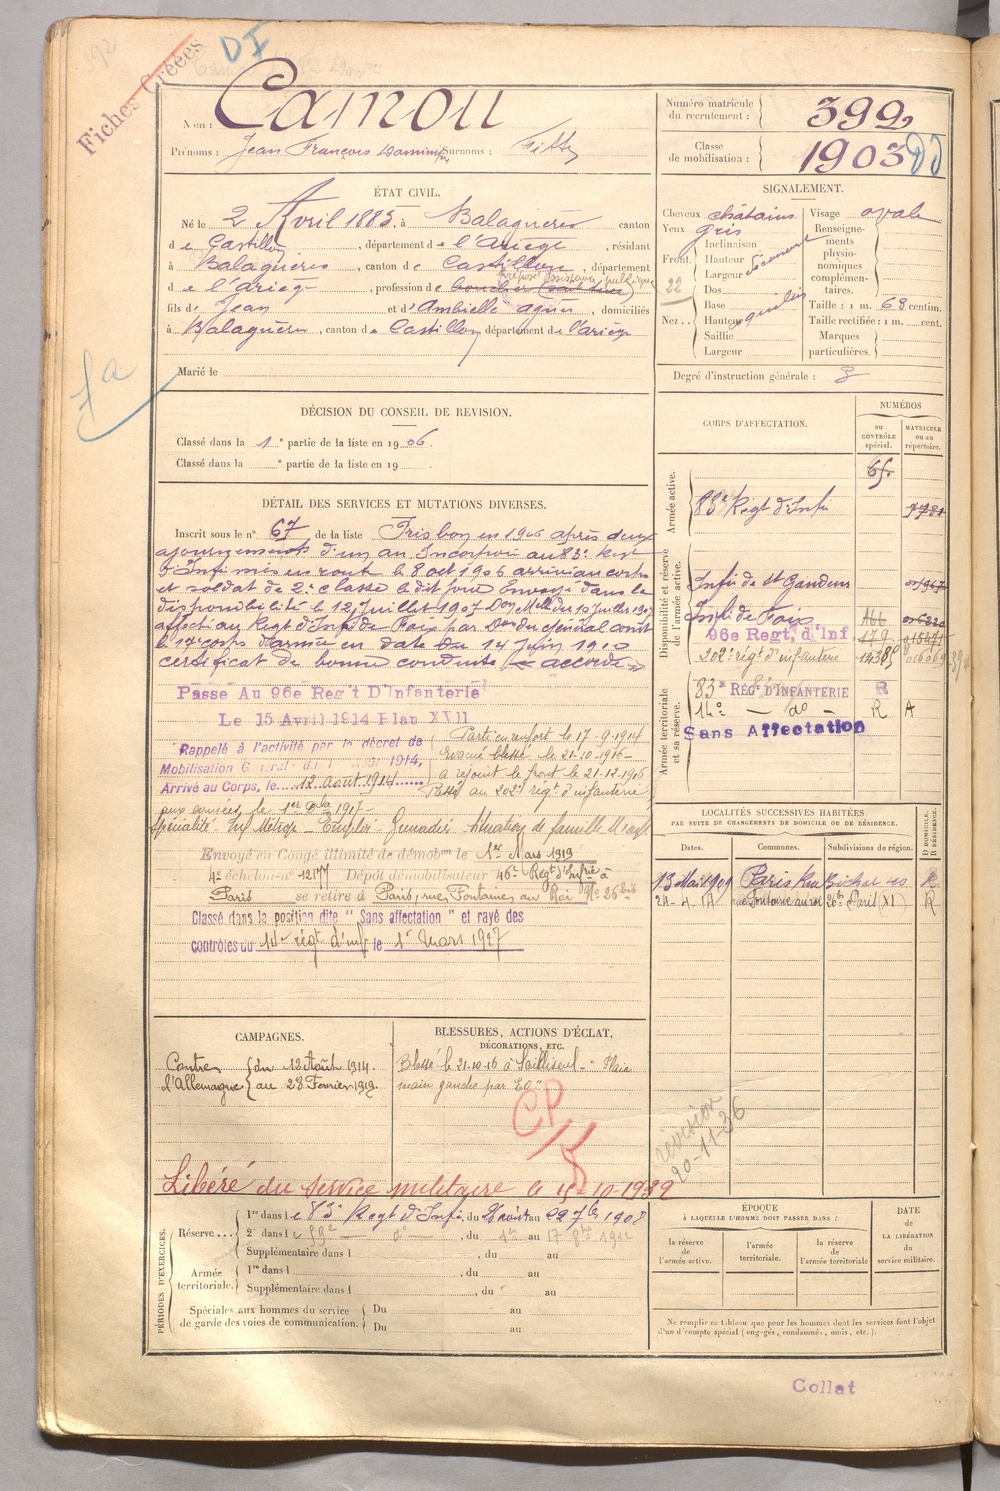 392
Fiches Créées
DI
Nom : Camou
Prénoms : Jean François Dominique Surnoms : Fitte
Numéro matricule du recrutement : 399
Classe de mobilisation : 1903
ÉTAT CIVIL.
Né le 2 Avril 1883, à Balaguères canton
de Castillon, département de l'Ariège, résidant
à Balaguères, canton de Castillon, département
préposé Assistance publique
de l'Ariège, profession de boucher
fils de Jean et d'Ambielle Agnès, domiciliés
à Balaguères, canton de Castillon département de l'ariège
Marié le
fa
SIGNALEMENT.
Cheveux châtains
Yeux gris
Front. Inclinaison
Hauteur
Largeur découvert
22
Nez .. Dos
Base
Hauteur
Saillie
Largeur
Visage ovale
Renseignements physionomiques complémentaires.
Taille : 1 m. 63 centim.
Taille rectifiée : 1 m. cent.
Marques particulières.
Degré d'instruction générale : 3
DÉCISION DU CONSEIL DE REVISION.
Classé dans la 1e partie de la liste en 1906.
Classé dans la e partie de la liste en 19 .
CORPS D'AFFECTATION.
NUMÉROS
au CONTRÔLE spécial.
MATRICULE ou au répertoire.
Armée active.
83e Régt d'Infie
Disponibilité et réserve de l'armée active.
Infie de St Gaudens
Infie de Foix
96e Regt, d'Inf
179
202e régt d'infanterie
Armée territoriale et sa réserve.
83e REGt D'INFANTERIE R
14e - do - R A
Sans Affectation
DÉTAIL DES SERVICES ET MUTATIONS DIVERSES.
Inscrit sous le n° 67 de la liste Pris bon en 1906 après deux
ajournements d'un an Incorporé au 83e Regt
d'Infie mis en route le 8 oct 1906 arrivé au corps
et soldat de 2e classe le dit jour Envoyé dans la
disponibilité le 12 Juillet 1907
affecté au Regt d'Infie de Foix par Don du général comt
le 17e corps d'armée en date du 14 Juin 1910
certificat de bonne conduite « accordé »
Passe Au 96e Reg't D'Infanterie
Le 15 Avril 1914 Plan XVII
Rappelé à l'activité par le décret de
Mobilisation Générale du 1er août 1914,
Arrivé au Corps, le 12 août 1914
Parti en renfort le 17-9-1914
Evacué blessé le 21-10-1916
a rejoint le front le 21-12-1916
Passé au 202e régt d'infanterie
aux armées, le 1er 1917
Spécialité - Inf Métrop - Emploi Grenadier - Situation de famille
Envoyé en Congé illimité de démobon le 1er Mars 1919
4e échelon n° Dépôt démobilisateur 46e Regt d'Infrie à
Paris se retire à Paris, rue Fontaine au Roi N° 26bis
Classé dans la position dite " Sans affectation " et rayé des
contrôles du 14e régt d'inf le 1er mars 1927
LOCALITÉS SUCCESSIVES HABITÉES
PAR SUITE DE CHANGEMENTS DE DOMICILE OU DE RÉSIDENCE.
Dates. Communes. Subdivisions de région. D DOMICILE. R RÉSIDENCE.
13 Mai 1909 Paris Rue Bichat 40 R
24-4-14 rue Fontaine au roi 26bis Paris (XI) R
CAMPAGNES.
Contre l'Allemagne
du 12 Août 1914.
au 28 Février 1919.
BLESSURES, ACTIONS D'ÉCLAT,
DÉCORATIONS, ETC.
Blessé le 21-10-16 à Saillisel - " Plaie
main gauche par EO "
CP
révision
20-11-36
Libéré du service militaire le 15-10-1932
PÉRIODES D'EXERCICES.
Réserve ... 1re dans le 83e Regt d'Infie, du au 1908
2e dans le 59e do, du au 17 1912
Supplémentaire dans l , du au
Armée territoriale. 1re dans l , du au
Supplémentaire dans l , du au
Spéciales aux hommes du service de garde des voies de communication. Du au
Du au
ÉPOQUE
À LAQUELLE L'HOMME DOIT PASSER DANS :
la réserve de l'armée active.
l'armée territoriale.
la réserve de l'armée territoriale
DATE de LA LIBÉRATION du service militaire.
Ne remplir ce tableau que pour les hommes dont les services font l'objet
d'un décompte spécial (engagés, condamnés, omis, etc.).
Collat